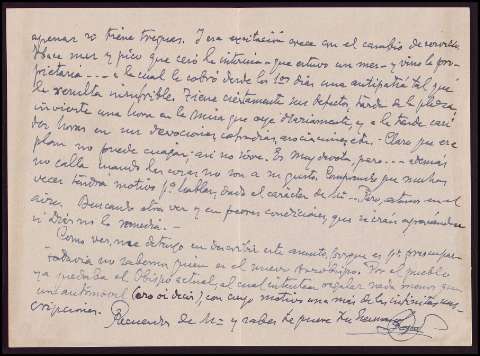 apenas si tiene treguas. Y esa excitación crece con el cambio de servicio
Hace mes y pico que cesó la interina - que estuvo un mes - y vino la pro-
pietaria - - - a la cual le cobró desde los 1os días una antipatía tal, que
le resulta insufrible. Tiene ciertamente sus defectos, tarda de la plaza
invierte una hora en la misa que oye diariamente, y a la tarde casi
dos horas en sus devociones, cofradías, asociaciones, etc. - Claro que ese
plan no puede cuajar; así no sirve. Es muy devota, pero - - - además
no calla cuando las cosas no son a su gusto. Comprendo que muchas
veces tendrá motivo pa hablar, dado el carácter de M- - Pero, estamos en el
aire. Buscando otra vez y en peores condiciones, que se irán agravando
si Dios no lo remedia. -
Como ves, me detengo en describir este asunto, porque es pa preocupar.
Todavía no sabemos quien es el nuevo Arzobispo. Por el pueblo
ya quedaba el Obispo actual, al cual intentan regalar nada menos que
un automóvil (eso oí decir) con cuyo motivo una más de las infinitas sus-
cripciones. Recuerdos de M- y sabes te quiere tu hermano